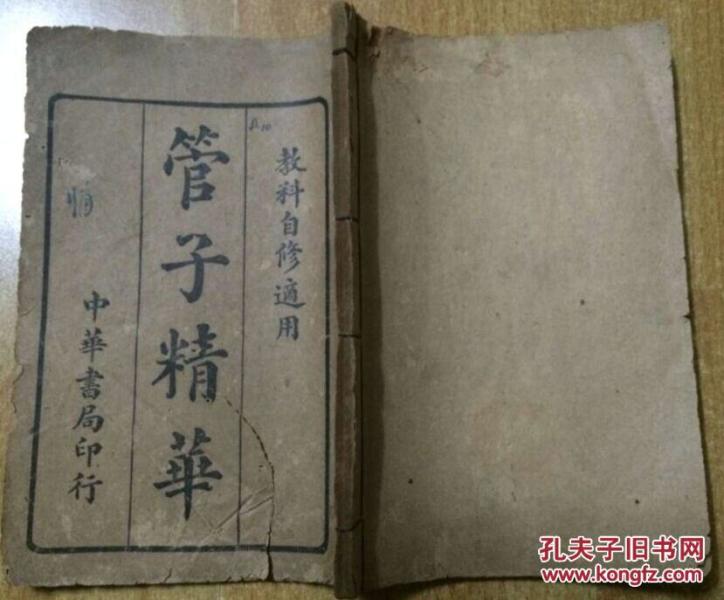 教科自修適用
管子精華
中華書局印行
孔夫子旧书网
www.kongfz.com